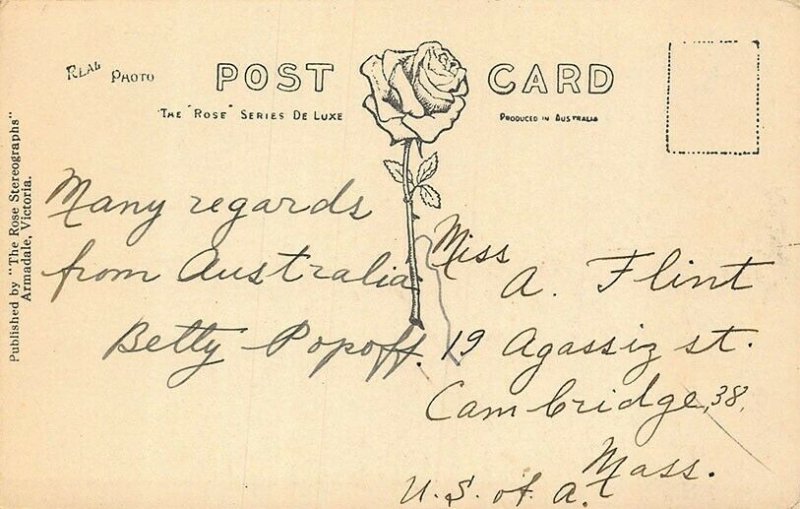 REAL PHOTO
POST CARD
THE "ROSE" SERIES DE LUXE
PRODUCED IN AUSTRALIA
Published by "The Rose Stereographs"
Armadale, Victoria.
Many regards
from Australia
Betty Popoff.
Miss
A. Flint
19 Agassiz st.
Cambridge, 38,
Mass.
U.S. of A.